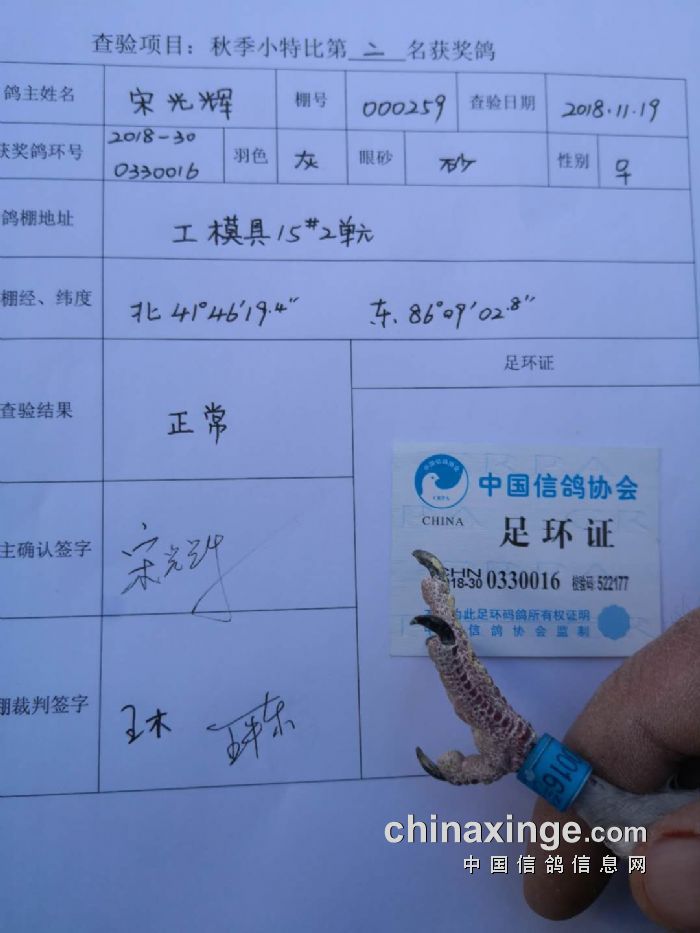 查验项目：秋季小特比第二名获奖鸽
鸽主姓名 宋光辉 棚号 000259 查验日期 2018.11.19
获奖鸽环号 2018-30 0330016 羽色 灰 眼砂 砂 性别 早
鸽棚地址 工模具15#2单元
棚经、纬度 北41°46′19.4″ 东86°09′02.8″
查验结果 正常
足环证
主确认签字 宋光辉
棚裁判签字 王木
中国信鸽协会
CHRPA
CHINA
足环证
CHN
2018-30 0330016 检验码: 522177
为此足环码鸽所有权证明
信鸽协会监制
0016
chinaxinge.com
中国信鸽信息网